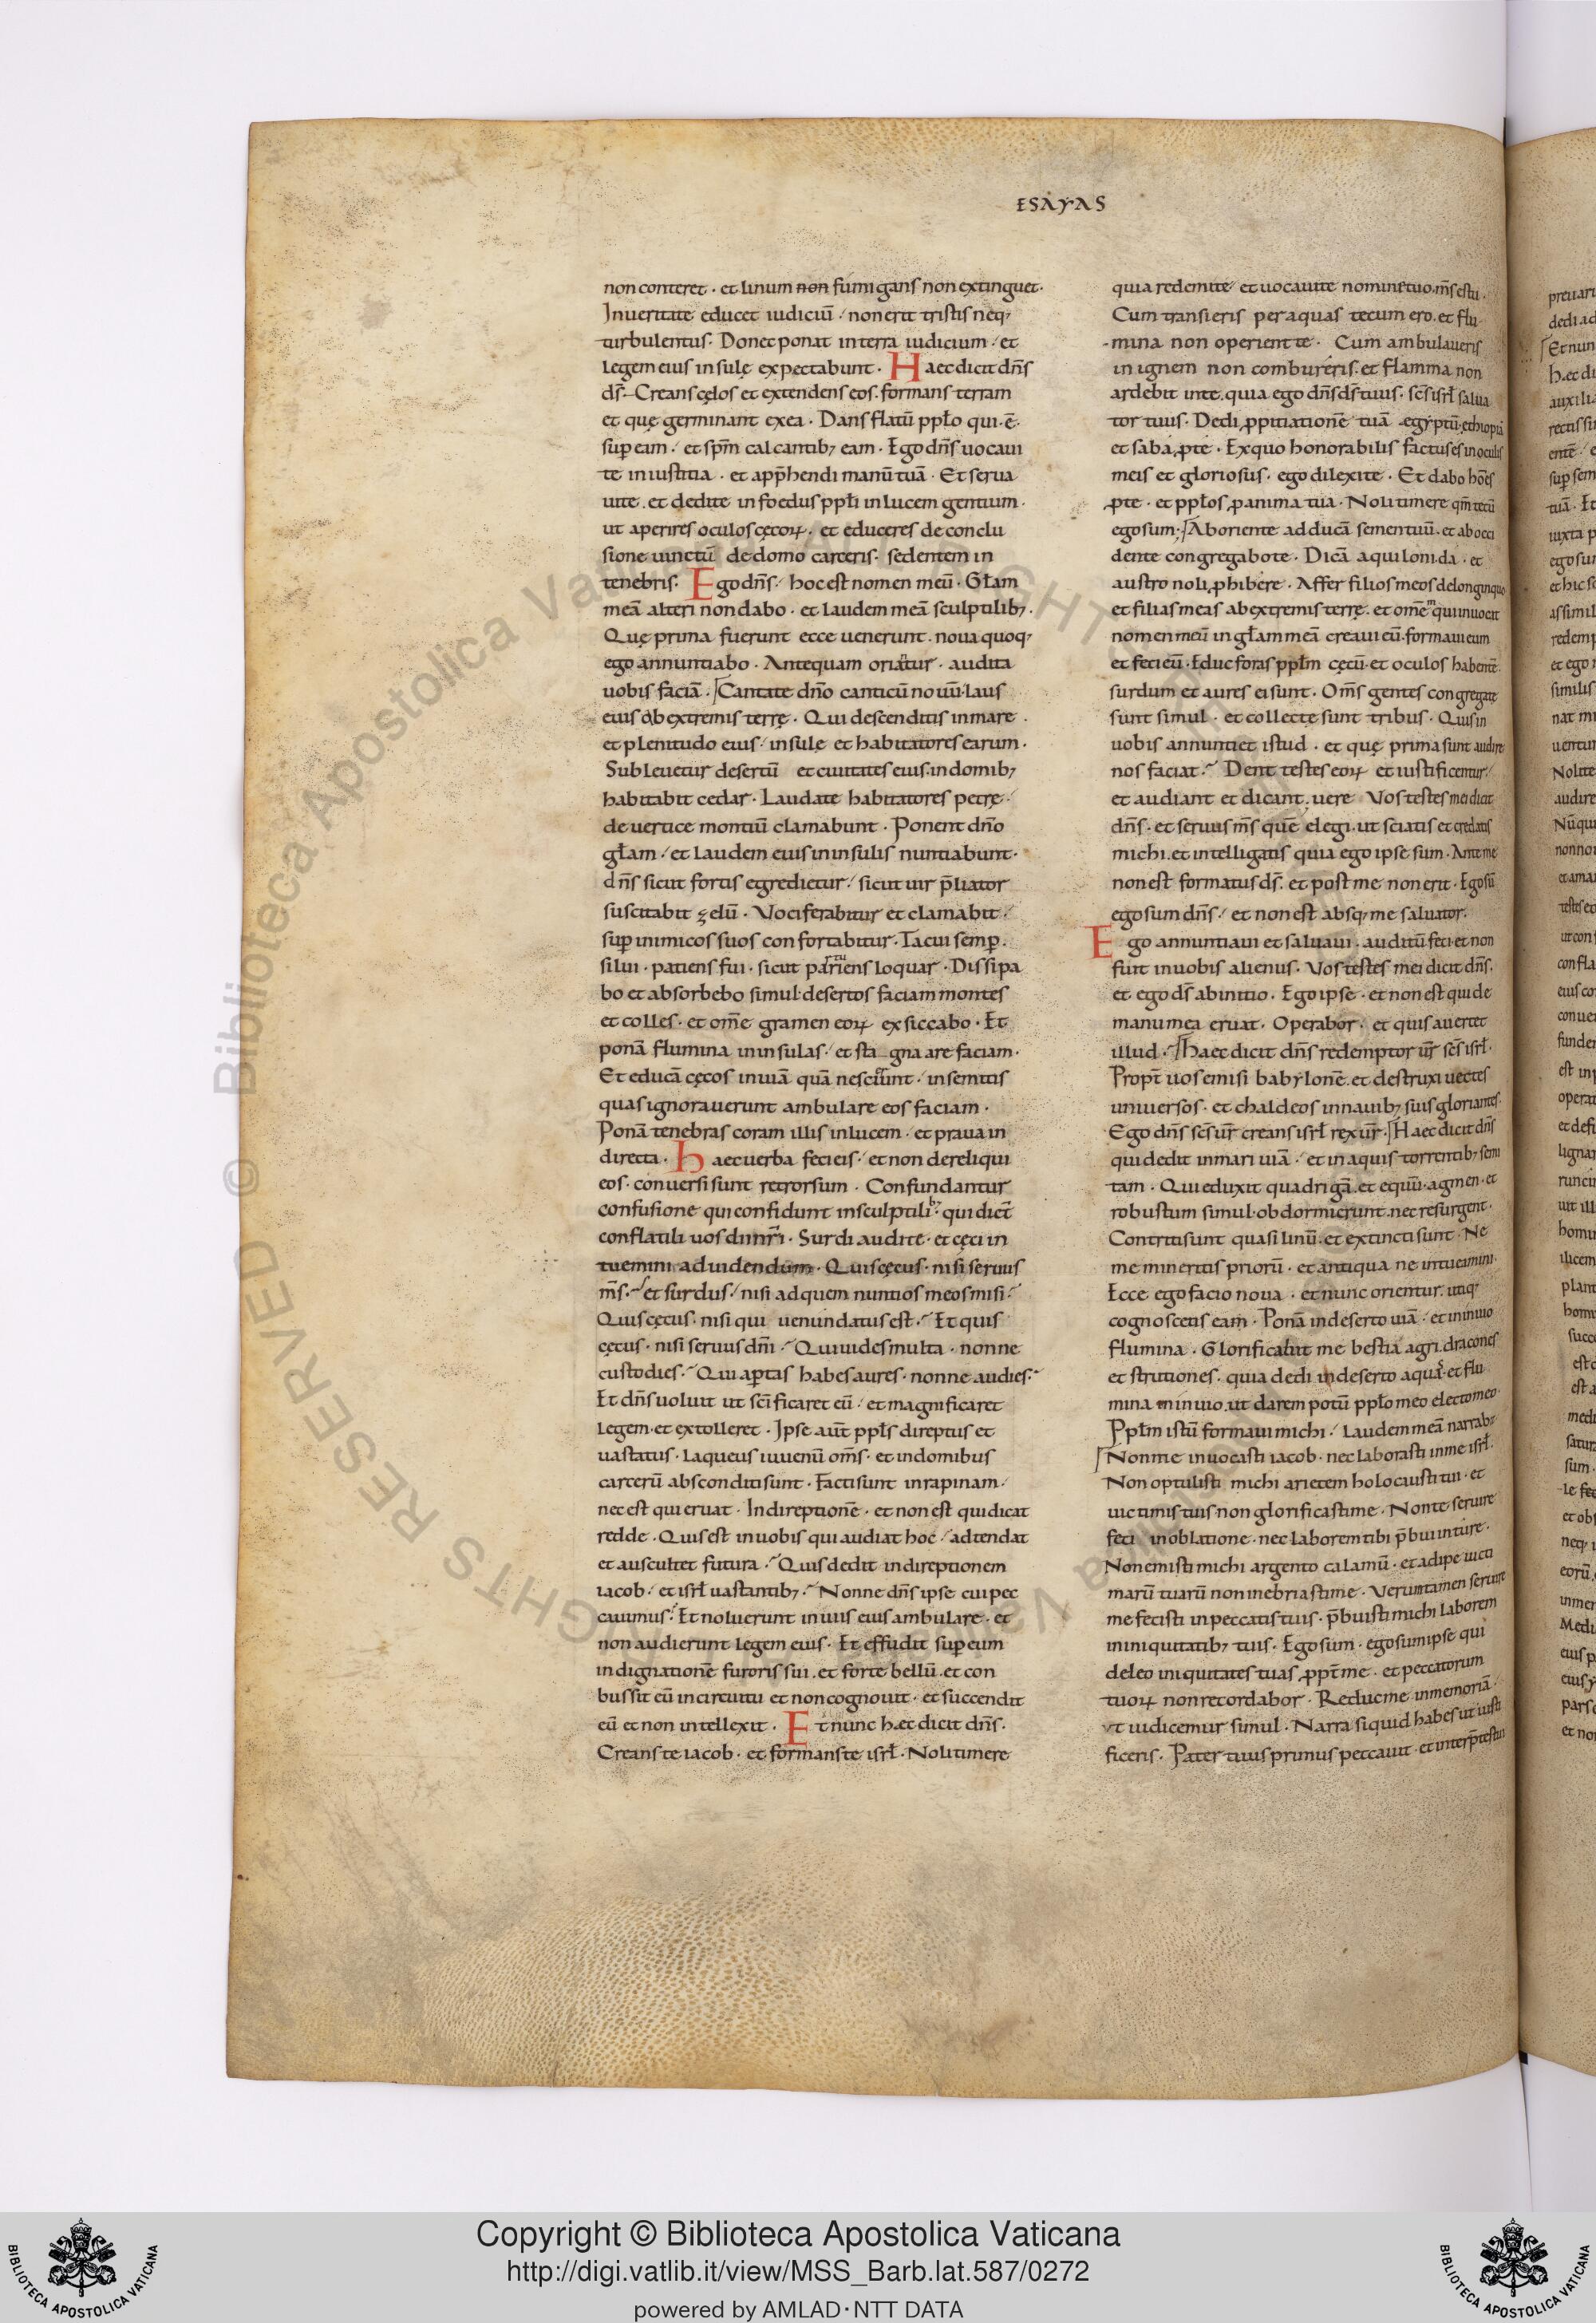 ESAYAS
non conteret · et linum non fumigans non extinguet ·
In ueritate educet iudiciū / non erit tristis neq;
turbulentus · Donec ponat in terra iudicium / et
legem eius insulę expectabunt · Haec dicit dn̄s
ds̄ · Creans cęlos et extendens eos · formans terram
et quę germinant ex ea · Dans flatū ppło qui · ē ·
sup̄ eam / et sp̄m calcantib; eam · Ego dn̄s uocaui
te in iustitia · et app̄hendi manū tuā · Et serua
ui te · et dedi te in foedus ppłi in lucem gentium ·
ut aperires oculos cęcoꝝ · et educeres de conclu
sione uinctū de domo carceris · sedentem in
tenebris · Ego dn̄s / hoc est nomen meū · Głam
meā alteri non dabo · et laudem meā sculptilib; ·
Quę prima fuerunt ecce uenerunt · noua quoq;
ego annuntiabo · Antequam oriantur · audita
uobis faciā · Cantate dn̄o canticū nouū · laus
eius ab extremis terrę · Qui descenditis in mare ·
et plenitudo eius / insulę et habitatores earum ·
Subleuetur desertū et ciuitates eius · in domib;
habitabit cedar · Laudate habitatores petrę /
de uertice montiū clamabunt · Ponent dn̄o
głam / et laudem eius in insulis nuntiabunt ·
dn̄s sicut fortis egredietur / sicut uir p̄liator
suscitabit zelū · Vociferabitur et clamabit /
sup̄ inimicos suos confortabitur · Tacui semp̄ ·
silui · patiens fui · sicut parturiens loquar · Dissipa
bo et absorbebo simul · desertos faciam montes
et colles · et om̄e gramen eoꝝ exsiccabo · Et
ponā flumina in insulas / et sta gna arefaciam ·
Et educā cęcos in uiā quā nesciunt / in semitis
quas ignorauerunt ambulare eos faciam ·
Ponā tenebras coram illis in lucem / et praua in
directa · haec uerba feci eis / et non dereliqui
eos · conuersi sunt retrorsum · Confundantur
confusione qui confidunt in sculptilib; · qui dict̄
conflatili uos dii nr̄i · Surdi audite · et cęci in
tuemini ad uidendum · Quis cęcus · nisi seruus
ms̄ · et surdus / nisi ad quem nuntios meos misi
Quis cęcus · nisi qui uenundatus est · Et quis
cęcus · nisi seruus dn̄i · Qui uides multa · nonne
custodies · Qui apertas habes aures · nonne audies ·
Et dn̄s uoluit ut sc̄ificaret eū / et magnificaret
legem · et extolleret · Ipse aūt ppłs direptus et
uastatus · laqueus iuuenū om̄s · et in domibus
carcerū absconditi sunt · Facti sunt in rapinam /
nec est qui eruat · In direptionē · et non est qui dicat
redde · Quis est in uobis qui audiat hoc / adtendat
et auscultet futura · Quis dedit in direptionem
iacob / et isrł uastantib; · Nonne dn̄s ipse cui pec
cauimus · Et noluerunt in uiis eius ambulare · et
non audierunt legem eius · Et effudit sup̄ eum
indignationē furoris sui · et forte bellū · et con
bussit eū in circuitu et non cognouit · et succendit
eū et non intellexit · Et nunc hęc dicit dn̄s ·
Creans te iacob · et formans te isrł · Noli timere
quia redemi te / et uocaui te nomine tuo · ms̄ es tu ·
Cum transieris per aquas tecum ero · et flu
mina non operient te · Cum ambulaueris
in ignem non combureris · et flamma non
ardebit in te · quia ego dn̄s ds̄ tuus · sc̄s isrł salua
tor tuus · Dedi ꝓpitiationē tuā · egyptū · ethiopiā
et saba ꝓ te · Ex quo honorabilis factus es in oculis
meis et gloriosus · ego dilexi te · Et dabo hoēs
ꝓ te · et ppłos ꝓ anima tua · Noli timere qm̄ tecū
ego sum; Ab oriente adducā semen tuū · et ab occi
dente congregabo te · Dicā aquiloni · da · et
austro noli ꝓhibere · Affer filios meos de longinquo
et filias meas ab extremis terrę · et om̄em qui inuocat
nomen meū in głam meā creaui eū · formaui eum
et feci eū · Educ foras ppłm cęcū · et oculos habentē ·
surdum et aures ei sunt · Om̄s gentes congregate
sunt simul · et collectę sunt tribus · Quis in
uobis annuntiet istud · et quę prima sunt audire
nos faciat · Dent testes eoꝝ et iustificentur /
et audiant et dicant · uere Vos testes mei dicit
dn̄s · et seruus ms̄ quē elegi · ut sciatis et credatis
michi · et intelligatis quia ego ipse sum · Ante me
non est formatus ds̄ · et post me non erit · Ego sū
ego sum dn̄s / et non est absq; me saluator ·
Ego annuntiaui et saluaui · auditū feci · et non
fuit in uobis alienus · Vos testes mei dicit dn̄s ·
et ego ds̄ ab initio · Ego ipse · et non est qui de
manu mea eruat · Operabor · et quis auertet
illud · haec dicit dn̄s redemptor ur̄ sc̄s isrł ·
Propt̄ uos emisi babylonē · et destruxi uectes
uniuersos · et chaldeos in nauib; suis gloriantes ·
Ego dn̄s sc̄s ur̄ creans isrł rex ur̄ · Haec dicit dn̄s
qui dedit in mari uiā / et in aquis torrentib; semi
tam · Qui eduxit quadrigā · et equū · agmen · et
robustum simul · obdormierunt · nec resurgent ·
Contriti sunt quasi linū · et extincti sunt · Ne
memineritis priorū · et antiqua ne intueamini ·
Ecce ego facio noua · et nunc orientur · utiq;
cognoscetis eam · Ponā in deserto uiā / et in inuio
flumina · Glorificabit me bestia agri · dracones
et strutiones · quia dedi in deserto aquas · et flu
mina in inuio · ut darem potū ppło meo electo meo
Ppłm istū formaui michi / laudem meā narrab;
Non me inuocasti iacob · nec laborasti in me isrł ·
Non optulisti michi arietem holocausti tui · et
uictimis tuis non glorificasti me · Non te seruire
feci in oblatione · nec laborem tibi p̄bui in ture ·
Non emisti michi argento calamū · et adipe uicti
marū tuarū non inebriasti me · Veruntamen seruire
me fecisti in peccatis tuis · p̄buisti michi laborem
in iniquitatib; tuis · Ego sum · ego sum ipse qui
deleo iniquitates tuas ꝓpt̄ me · et peccatorum
tuoꝝ non recordabor · Reduc me in memoriā ·
ut iudicemur simul · Narra siquid habes ut iusti
ficeris · Pater tuus primus peccauit · et interp̄tes tui
Copyright © Biblioteca Apostolica Vaticana
http://digi.vatlib.it/view/MSS_Barb.lat.587/0272
powered by AMLAD·NTT DATA